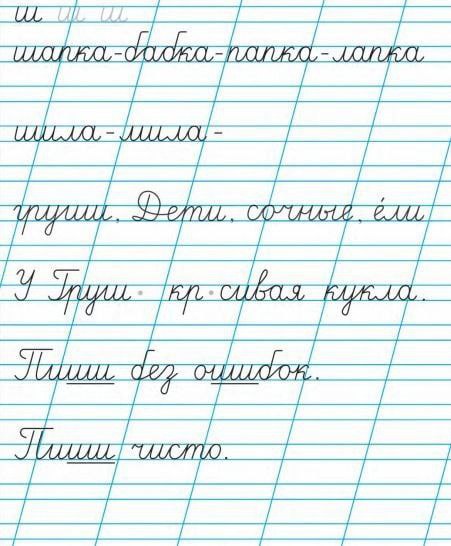 ш ш ш
шапка-бабка-папка-лапка
шила-мила-
груши, Дети, сочные, е́ли
У Груш· кр·сивая кукла.
Пиши без ошибок.
Пиши чисто.